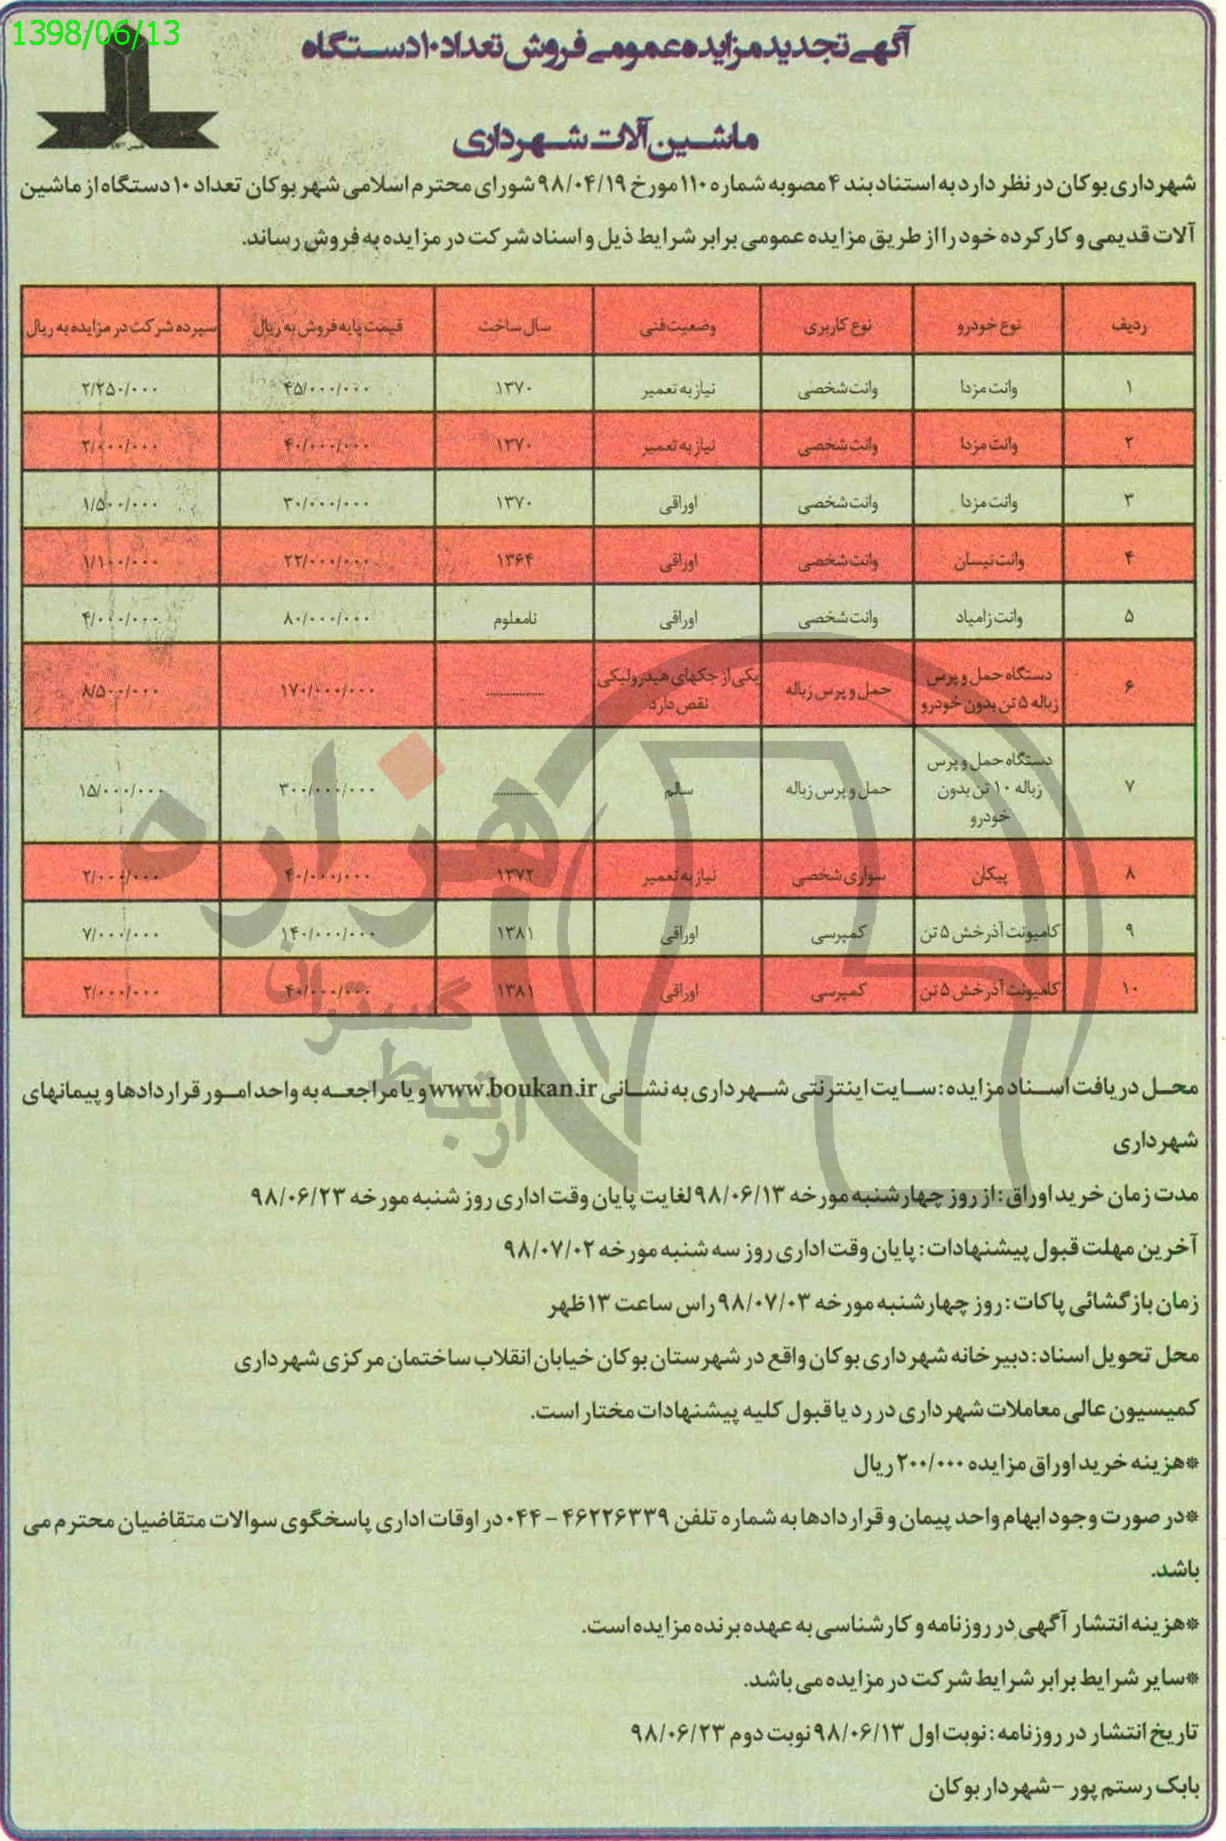 1398/06/13
آگهی تجدید مزایده عمومی فروش تعداد ۱۰ دستگاه
ماشین آلات شهرداری
شهرداری بوکان در نظر دارد به استناد بند ۴ مصوبه شماره ۱۱۰ مورخ ۹۸/۰۴/۱۹ شورای محترم اسلامی شهر بوکان تعداد ۱۰ دستگاه از ماشین
آلات قدیمی و کارکرده خود را از طریق مزایده عمومی برابر شرایط ذیل و اسناد شرکت در مزایده به فروش رساند.
ردیف نوع خودرو نوع کاربری وضعیت فنی سال ساخت قیمت پایه فروش به ریال سپرده شرکت در مزایده به ریال
۱ وانت مزدا وانت شخصی نیاز به تعمیر ۱۳۷۰ ۴۵/۰۰۰/۰۰۰ ۲/۲۵۰/۰۰۰
۲ وانت مزدا وانت شخصی نیاز به تعمیر ۱۳۷۰ ۴۰/۰۰۰/۰۰۰ ۲/۰۰۰/۰۰۰
۳ وانت مزدا وانت شخصی اوراقی ۱۳۷۰ ۳۰/۰۰۰/۰۰۰ ۱/۵۰۰/۰۰۰
۴ وانت نیسان وانت شخصی اوراقی ۱۳۶۴ ۲۲/۰۰۰/۰۰۰ ۱/۱۰۰/۰۰۰
۵ وانت زامیاد وانت شخصی اوراقی نامعلوم ۸۰/۰۰۰/۰۰۰ ۴/۰۰۰/۰۰۰
۶ دستگاه حمل و پرس زباله ۵ تن بدون خودرو حمل و پرس زباله یکی از جکهای هیدرولیکی نقص دارد ............... ۱۷۰/۰۰۰/۰۰۰ ۸/۵۰۰/۰۰۰
۷ دستگاه حمل و پرس زباله ۱۰ تن بدون خودرو حمل و پرس زباله سالم ............ ۳۰۰/۰۰۰/۰۰۰ ۱۵/۰۰۰/۰۰۰
۸ پیکان سواری شخصی نیاز به تعمیر ۱۳۷۲ ۴۰/۰۰۰/۰۰۰ ۲/۰۰۰/۰۰۰
۹ کامیونت آذرخش ۵ تن کمپرسی اوراقی ۱۳۸۱ ۱۴۰/۰۰۰/۰۰۰ ۷/۰۰۰/۰۰۰
۱۰ کامیونت آذرخش ۵ تن کمپرسی اوراقی ۱۳۸۱ ۴۰/۰۰۰/۰۰۰ ۲/۰۰۰/۰۰۰
محل دریافت اسناد مزایده: سایت اینترنتی شهرداری به نشانی www.boukan.ir و یا مراجعه به واحد امور قراردادها و پیمانهای
شهرداری
مدت زمان خرید اوراق: از روز چهارشنبه مورخه ۹۸/۰۶/۱۳ لغایت پایان وقت اداری روز شنبه مورخه ۹۸/۰۶/۲۳
آخرین مهلت قبول پیشنهادات: پایان وقت اداری روز سه شنبه مورخه ۹۸/۰۷/۰۲
زمان بازگشائی پاکات: روز چهارشنبه مورخه ۹۸/۰۷/۰۳ راس ساعت ۱۳ ظهر
محل تحویل اسناد: دبیرخانه شهرداری بوکان واقع در شهرستان بوکان خیابان انقلاب ساختمان مرکزی شهرداری
کمیسیون عالی معاملات شهرداری در رد یا قبول کلیه پیشنهادات مختار است.
*هزینه خرید اوراق مزایده ۲۰۰/۰۰۰ ریال
*در صورت وجود ابهام واحد پیمان و قراردادها به شماره تلفن ۴۶۲۲۶۳۳۹ - ۰۴۴ در اوقات اداری پاسخگوی سوالات متقاضیان محترم می
باشد.
*هزینه انتشار آگهی در روزنامه و کارشناسی به عهده برنده مزایده است.
*سایر شرایط برابر شرایط شرکت در مزایده می باشد.
تاریخ انتشار در روزنامه: نوبت اول ۹۸/۰۶/۱۳ نوبت دوم ۹۸/۰۶/۲۳
بابک رستم پور - شهردار بوکان
هزاره
ارتباط گستران